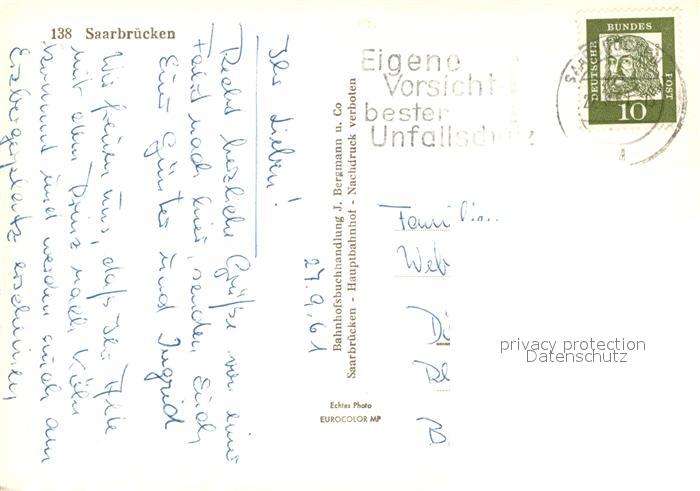 138 Saarbrücken
27.9.61
Ihr Lieben!
Recht herzliche Grüße von einer
Fahrt nach hier, senden Euch
Eure Günter und Ingrid
Wir freuen uns, daß Ihr Alle
mit dem Prinz nach Köln
kommt und werden auch am
Eisbergerplatz erscheinen
Bahnhofsbuchhandlung J. Bergmann u. Co
Saarbrücken - Hauptbahnhof - Nachdruck verboten
Echtes Photo
EUROCOLOR MP
Eigene
Vorsicht
bester
Unfallschutz
DEUTSCHE BUNDES POST
10
Familie
Web
privacy protection
Datenschutz